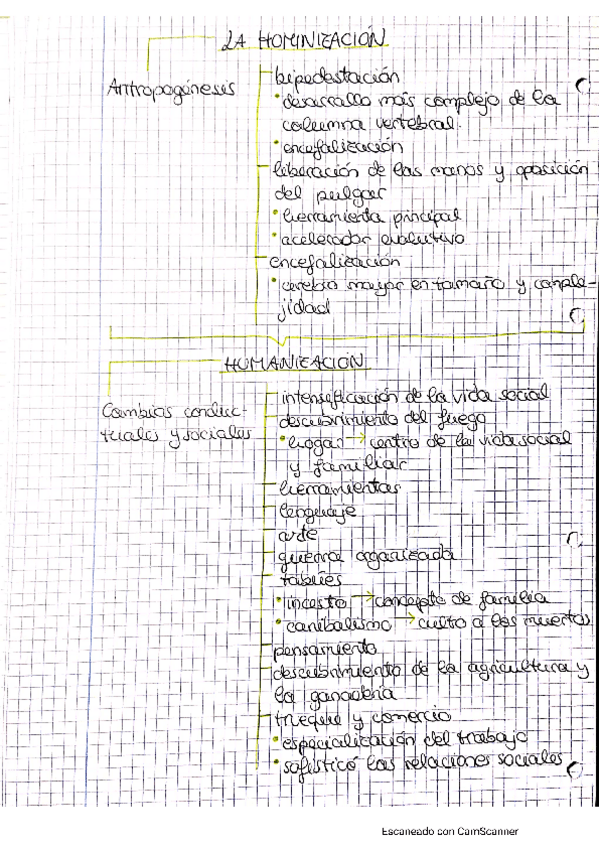 LA HOMINIZACIÓN
Antropogénesis
bipedestación
• desarrollo más complejo de la
columna vertebral.
• encefalización
liberación de las manos y oposición
del pulgar
• herramienta principal
• acelerador evolutivo
encefalización
• cerebro mayor en tamaño y comple-
jidad
HUMANIZACIÓN
Cambios conduc-
tuales y sociales
intensificación de la vida social
descubrimiento del fuego
• hogar → centro de la vida social
y familiar
herramientas
lenguaje
arte
guerra organizada
tabúes
• incesto → concepto de familia
• canibalismo → culto a los muertos
pensamiento
descubrimiento de la agricultura y
la ganadería
trueque y comercio
• especialización del trabajo
• sofisticó las relaciones sociales
Escaneado con CamScanner